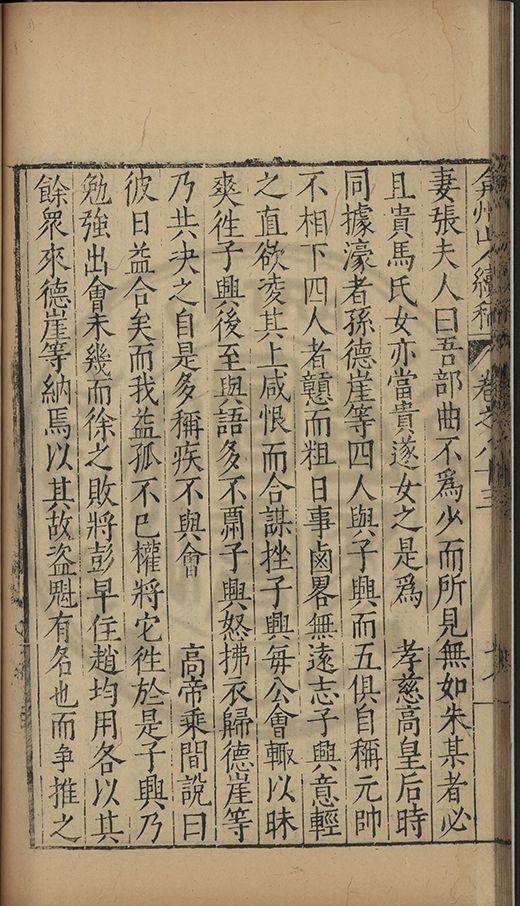 弇州山人續稿 卷之八十三
妻張夫人曰吾部曲不爲少而所見無如朱某者必
且貴馬氏女亦當貴遂女之是爲 孝慈高皇后時
同據濠者孫德崖等四人與子興而五俱自稱元帥
不相下四人者戇而粗日事鹵畧無遠志子興意輕
之直欲凌其上咸恨而合謀挫子興每公會輙以昧
爽徃子興後至與語多不肅子興怒拂衣歸德崖等
乃共決之自是多稱疾不與會 高帝乘間說曰
彼日益合矣而我益孤不已權將它徃於是子興乃
勉強出會未幾而徐之敗將彭早住趙均用各以其
餘衆來德崖等納焉以其故盜魁有名也而争推之